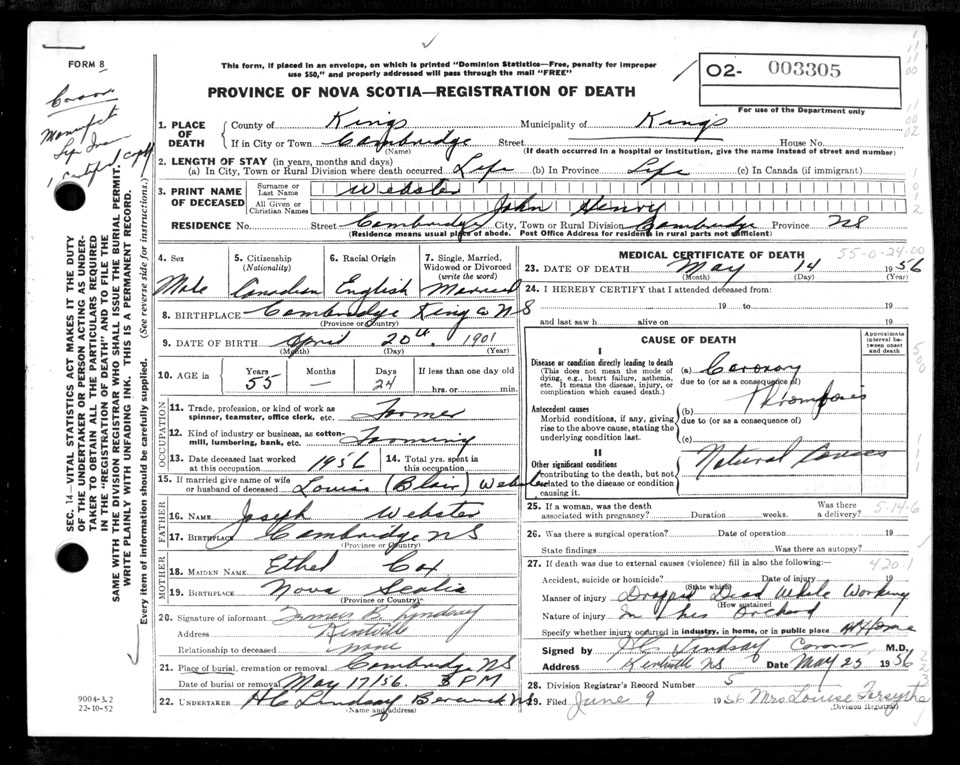 FORM 8
This form, if placed in an envelope, on which is printed "Dominion Statistics—Free, penalty for improper
use $50," and properly addressed will pass through the mail "FREE"
PROVINCE OF NOVA SCOTIA—REGISTRATION OF DEATH
O2- 003305
For use of the Department only
1 Certified Copy
SEC. 14—VITAL STATISTICS ACT MAKES IT THE DUTY
OF THE UNDERTAKER OR PERSON ACTING AS UNDER-
TAKER TO OBTAIN ALL THE PARTICULARS REQUIRED
IN THE "REGISTRATION OF DEATH" AND TO FILE THE
SAME WITH THE DIVISION REGISTRAR WHO SHALL ISSUE THE BURIAL PERMIT.
WRITE PLAINLY WITH UNFADING INK. THIS IS A PERMANENT RECORD.
Every item of information should be carefully supplied. (See reverse side for instructions.)
1. PLACE OF DEATH County of Kings Municipality of Kings
If in City or Town Cambridge Street House No.
(Name) (If death occurred in a hospital or institution, give the name instead of street and number)
2. LENGTH OF STAY (in years, months and days)
(a) In City, Town or Rural Division where death occurred Life (b) In Province Life (c) In Canada (if immigrant)
3. PRINT NAME OF DECEASED Surname or Last Name Webster
All Given or Christian Names John Henry
RESIDENCE No. Street Cambridge City, Town or Rural Division Cambridge Province NS
(Residence means usual place of abode. Post Office Address for residents in rural parts not sufficient)
4. Sex 5. Citizenship (Nationality) 6. Racial Origin 7. Single, Married, Widowed or Divorced (write the word)
Male Canadian English Married
8. BIRTHPLACE Cambridge Kings Co NS
(Province or Country)
9. DATE OF BIRTH April 20th 1901
(Month) (Day) (Year)
10. AGE in Years Months Days If less than one day old
55 — 24 hrs. or min.
OCCUPATION
11. Trade, profession, or kind of work as spinner, teamster, office clerk, etc. Farmer
12. Kind of industry or business, as cotton-mill, lumbering, bank, etc. Farming
13. Date deceased last worked at this occupation 1956 14. Total yrs. spent in this occupation
15. If married give name of wife or husband of deceased Louise (Blair) Webster
FATHER
16. NAME Joseph Webster
17. BIRTHPLACE Cambridge NS
(Province or Country)
MOTHER
18. MAIDEN NAME Ethel Cox
19. BIRTHPLACE Nova Scotia
(Province or Country)
20. Signature of informant Francis B. Lindsay
Address Kentville
Relationship to deceased none
21. Place of burial, cremation or removal Cambridge NS
Date of burial or removal May 17/56. 3 PM
22. UNDERTAKER HC Lindsay Berwick NS
(Name and address)
9004-3.2
22-10-52
MEDICAL CERTIFICATE OF DEATH
55-0-24-00
23. DATE OF DEATH May 14 1956
(Month) (Day) (Year)
24. I HEREBY CERTIFY that I attended deceased from:
19 to 19
and last saw h alive on 19
CAUSE OF DEATH
Approximate interval between onset and death
I
Disease or condition directly leading to death
(This does not mean the mode of dying, e.g., heart failure, asthenia, etc. It means the disease, injury, or complication which caused death.)
(a) Coronary
due to (or as a consequence of)
Antecedent causes
Morbid conditions, if any, giving rise to the above cause, stating the underlying condition last.
(b) Thrombosis
due to (or as a consequence of)
(c)
II
Other significant conditions
contributing to the death, but not related to the disease or condition causing it.
Natural Causes
25. If a woman, was the death associated with pregnancy? Duration weeks. Was there a delivery?
5-14-6
26. Was there a surgical operation? Date of operation 19
State findings Was there an autopsy?
27. If death was due to external causes (violence) fill in also the following:
420-1
Accident, suicide or homicide? Date of injury 19
(State which)
Manner of injury Dropped Dead While Working
(How sustained)
Nature of injury In his Orchard
Specify whether injury occurred in industry, in home, or in public place At Home
Signed by HC Lindsay M.D.
Address Kentville NS Date May 23 1956
28. Division Registrar's Record Number 5
29. Filed June 9 1956 Mrs Louise Forsythe
(Division Registrar)